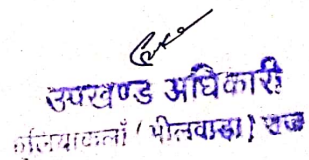 उपखण्ड अधिकारी
(भीलवाड़ा) राज